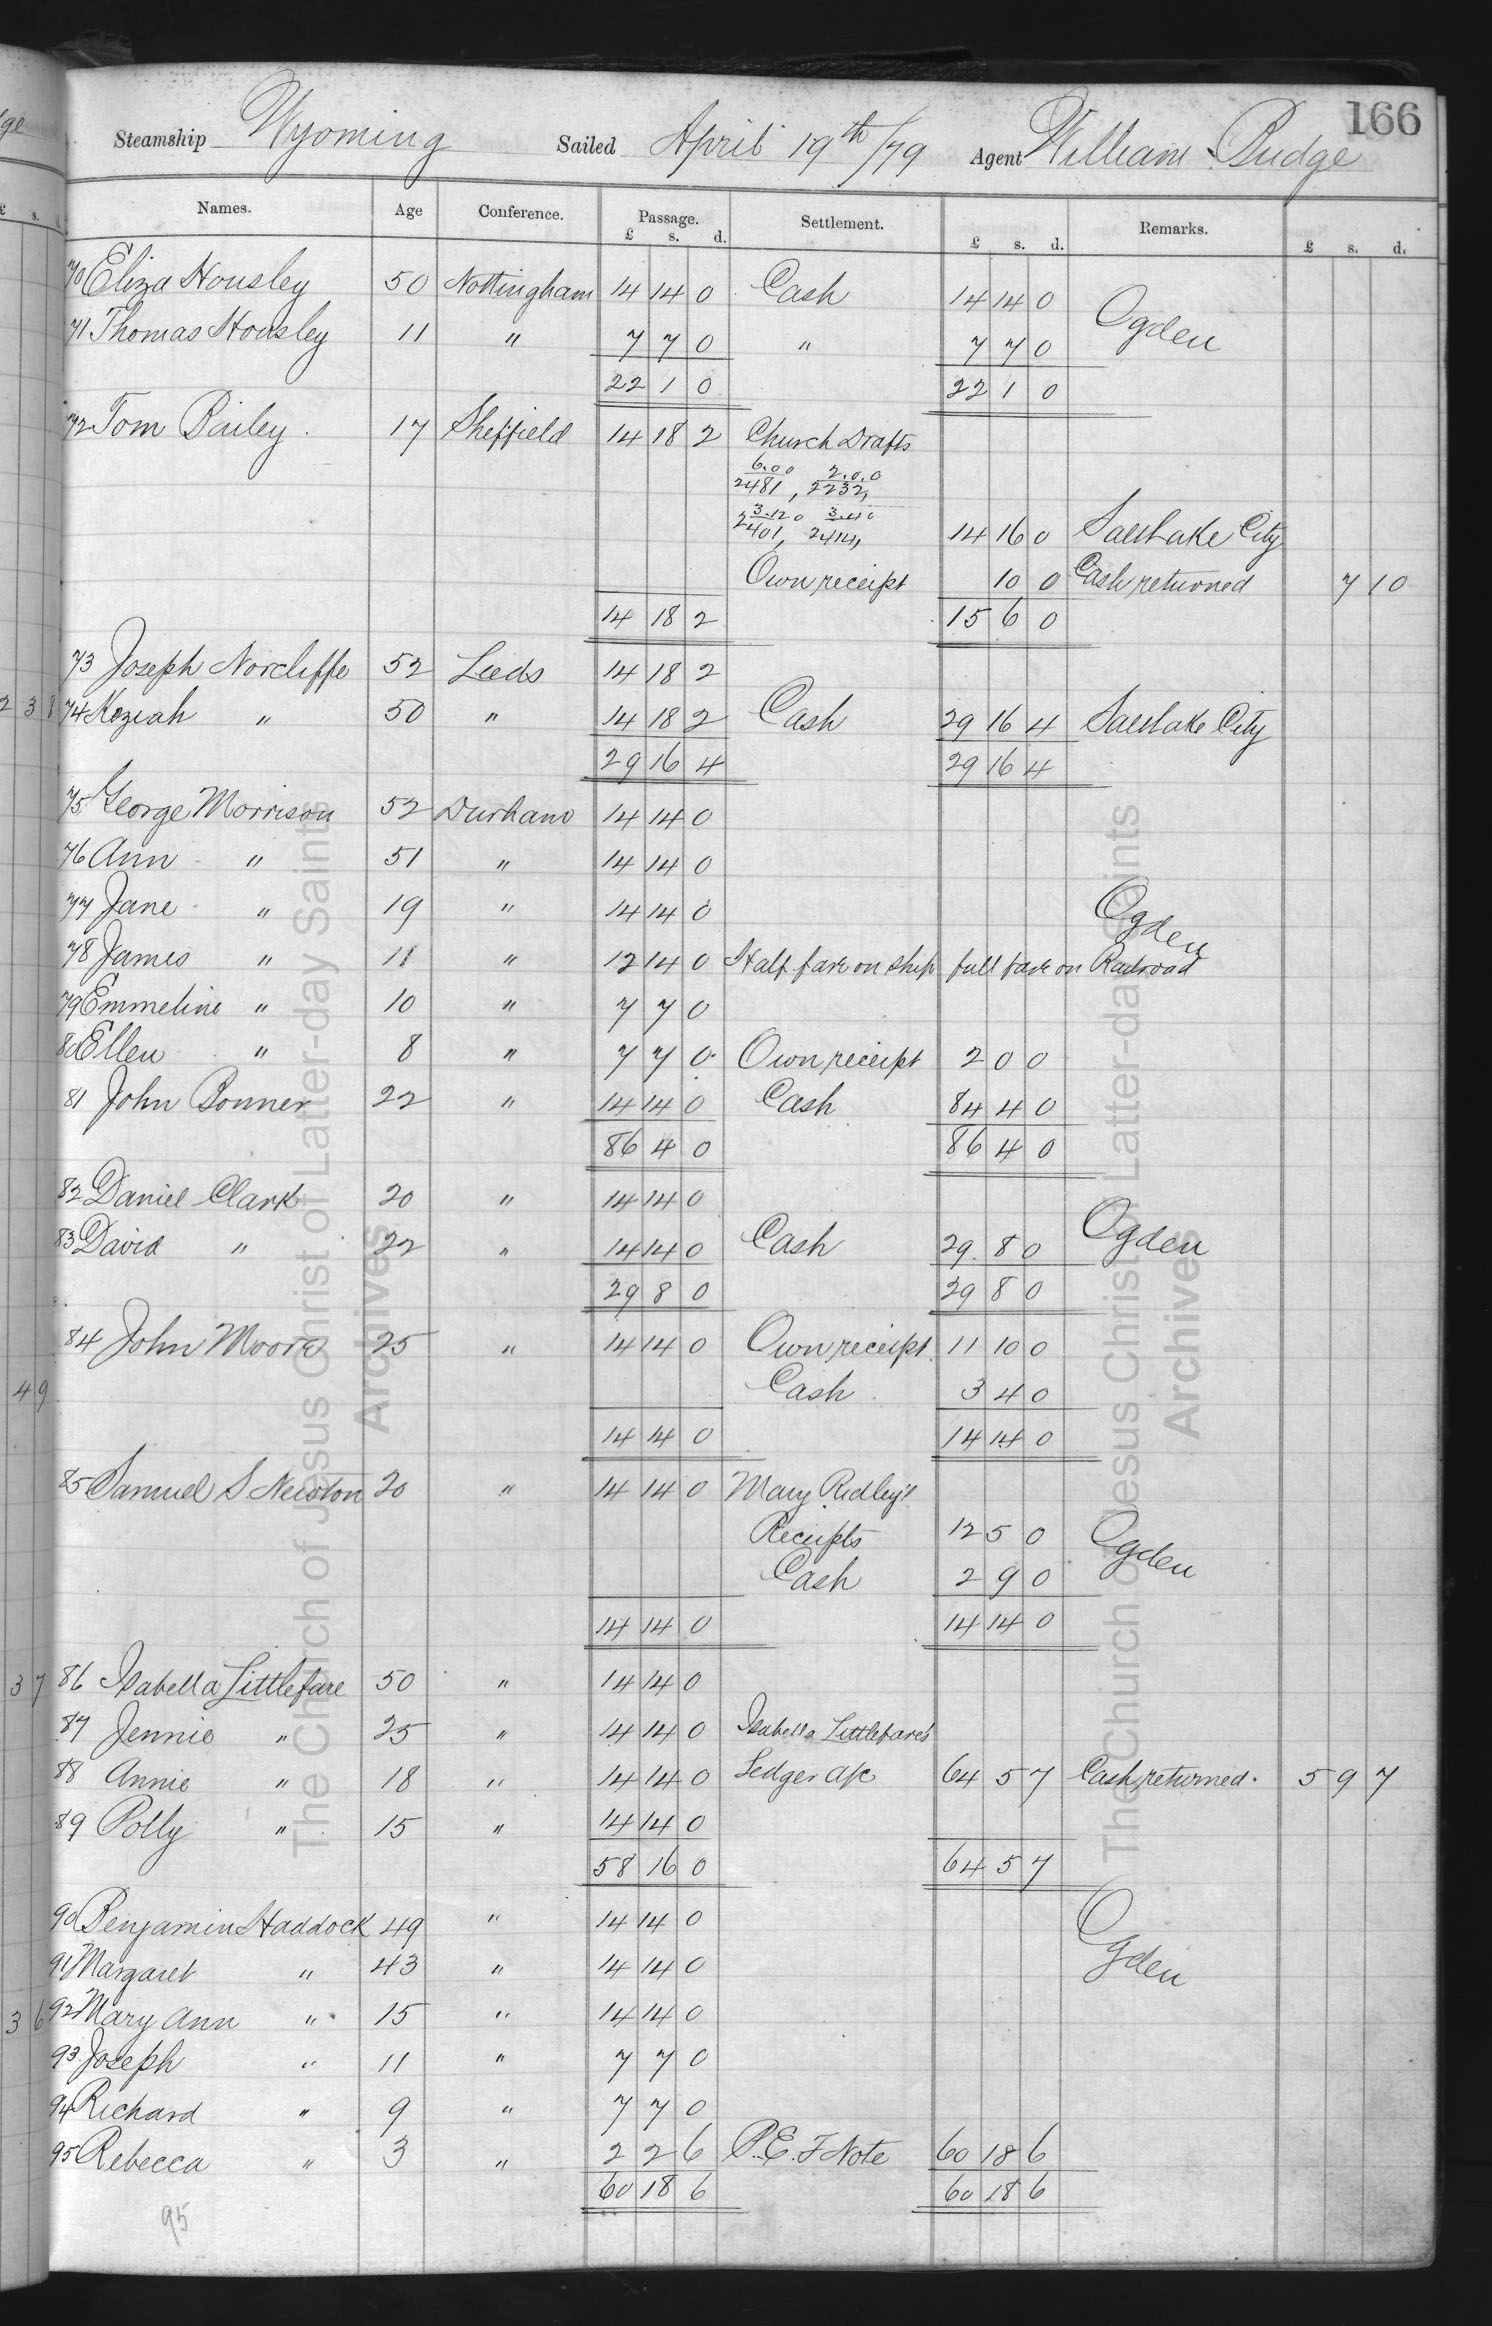 166
Steamship Wyoming Sailed April 19th/79 Agent William Budge
Names. Age Conference. Passage. Settlement. Remarks.
£ s. d. £ s. d. £ s. d.
70 Eliza Housley 50 Nottingham 14 14 0 Cash 14 14 0
71 Thomas Housley 11 " 7 7 0 " 7 7 0 Ogden
22 1 0 22 1 0
72 Tom Bailey 17 Sheffield 14 18 2 Church Drafts
6.0 0 2.0.0
2481, 2232,
3.12 0 3.4 0
2401, 2414,
14 16 0 Salt Lake City
Own receipt 10 0 Cash returned 7 10
14 18 2 15 6 0
73 Joseph Norcliffe 52 Leeds 14 18 2
74 Keziah " 50 " 14 18 2 Cash 29 16 4 Salt Lake City
29 16 4 29 16 4
75 George Morrison 52 Durham 14 14 0
76 Ann " 51 " 14 14 0
77 Jane " 19 " 14 14 0 Ogden
78 James " 11 " 12 14 0 Half fare on ship full fare on Railroad
79 Emmeline " 10 " 7 7 0
80 Ellen " 8 " 7 7 0 Own receipt 2 0 0
81 John Bonner 22 " 14 14 0 Cash 84 4 0
86 4 0 86 4 0
82 Daniel Clark 20 " 14 14 0
83 David " 22 " 14 14 0 Cash 29 8 0 Ogden
29 8 0 29 8 0
84 John Moore 25 " 14 14 0 Own receipt 11 10 0
Cash 3 4 0
14 14 0 14 14 0
85 Samuel S Newton 20 " 14 14 0 Mary Ridley's
Receipts 12 5 0 Ogden
Cash 2 9 0
14 14 0 14 14 0
86 Isabella Littlefare 50 " 14 14 0
87 Jennie " 25 " 14 14 0 Isabella Littlefare's
88 Annie " 18 " 14 14 0 Ledger a/c 64 5 7 Cash returned. 5 9 7
89 Polly " 15 " 14 14 0
58 16 0 64 5 7
90 Benjamin Haddock 49 " 14 14 0
91 Margaret " 43 " 14 14 0 Ogden
92 Mary Ann " 15 " 14 14 0
93 Joseph " 11 " 7 7 0
94 Richard " 9 " 7 7 0
95 Rebecca " 3 " 2 2 6 P.E.F Note 60 18 6
60 18 6 60 18 6
95
The Church of Jesus Christ of Latter-day Saints
Archives
The Church of Jesus Christ of Latter-day Saints
Archives